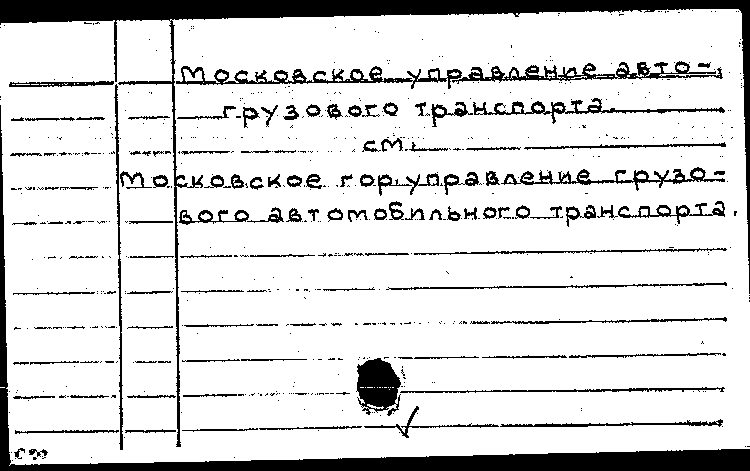 Московское управление авто-
грузового транспорта.
см.
Московское гор. управление грузо-
вого автомобильного транспорта.